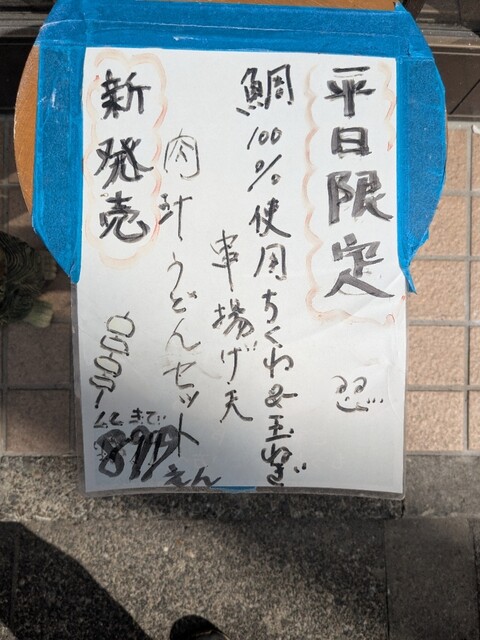 平日限定
鯛100%使用ちくわ&玉ねぎ
串揚げ天
肉汁うどんセット
新発売
まで
えん